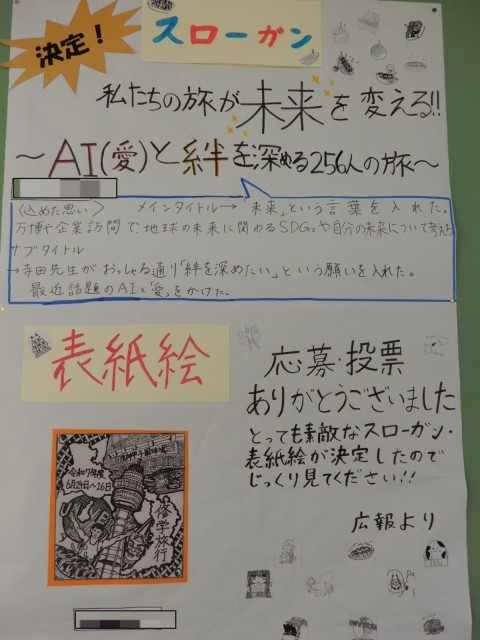 決定！
スローガン
私たちの旅が未来を変える!!
～AI(愛)と絆を深める256人の旅～
〈込めた思い〉 メインタイトル→「未来」という言葉を入れた。
万博や企業訪問で、地球の未来に関わるSDGsや自分の未来について考える
サブタイトル
→寺田先生がおっしゃる通り「絆を深めたい」という願いを入れた。
最近話題のAIと「愛」をかけた。
表紙絵
応募・投票
ありがとうございました
とっても素敵なスローガン・
表紙絵が決定したので
じっくり見てください!!
広報より
令和7年度
6月24日～26日
修学旅行